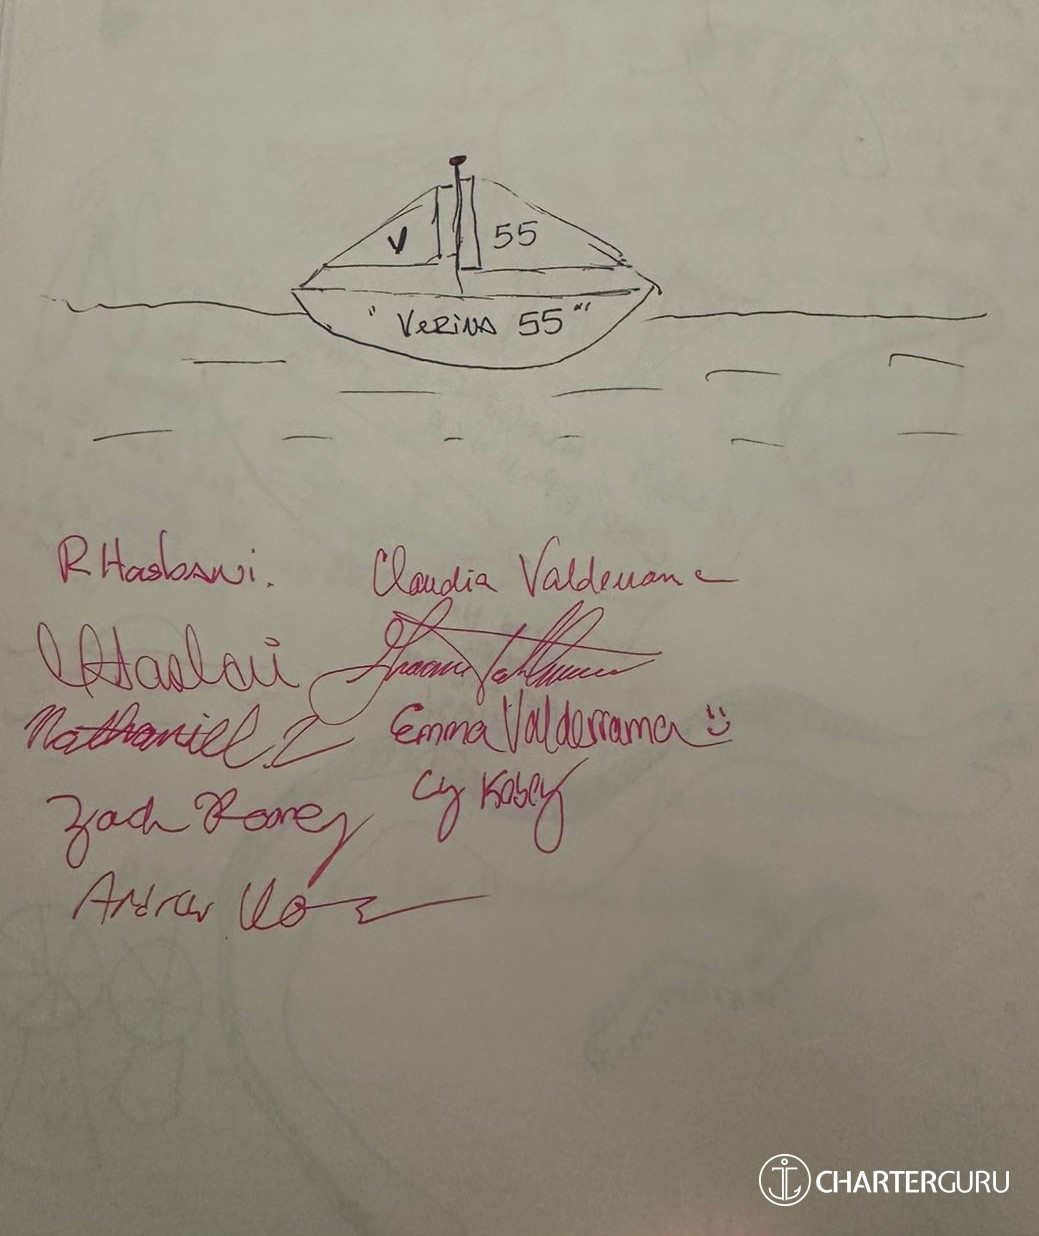 V 55
" VERINA 55 "
R Hasbani.
Claudia Valderrama
Hasbani
Nathaniel
Emma Valderrama
Zach
Cy
Andrew
CHARTERGURU